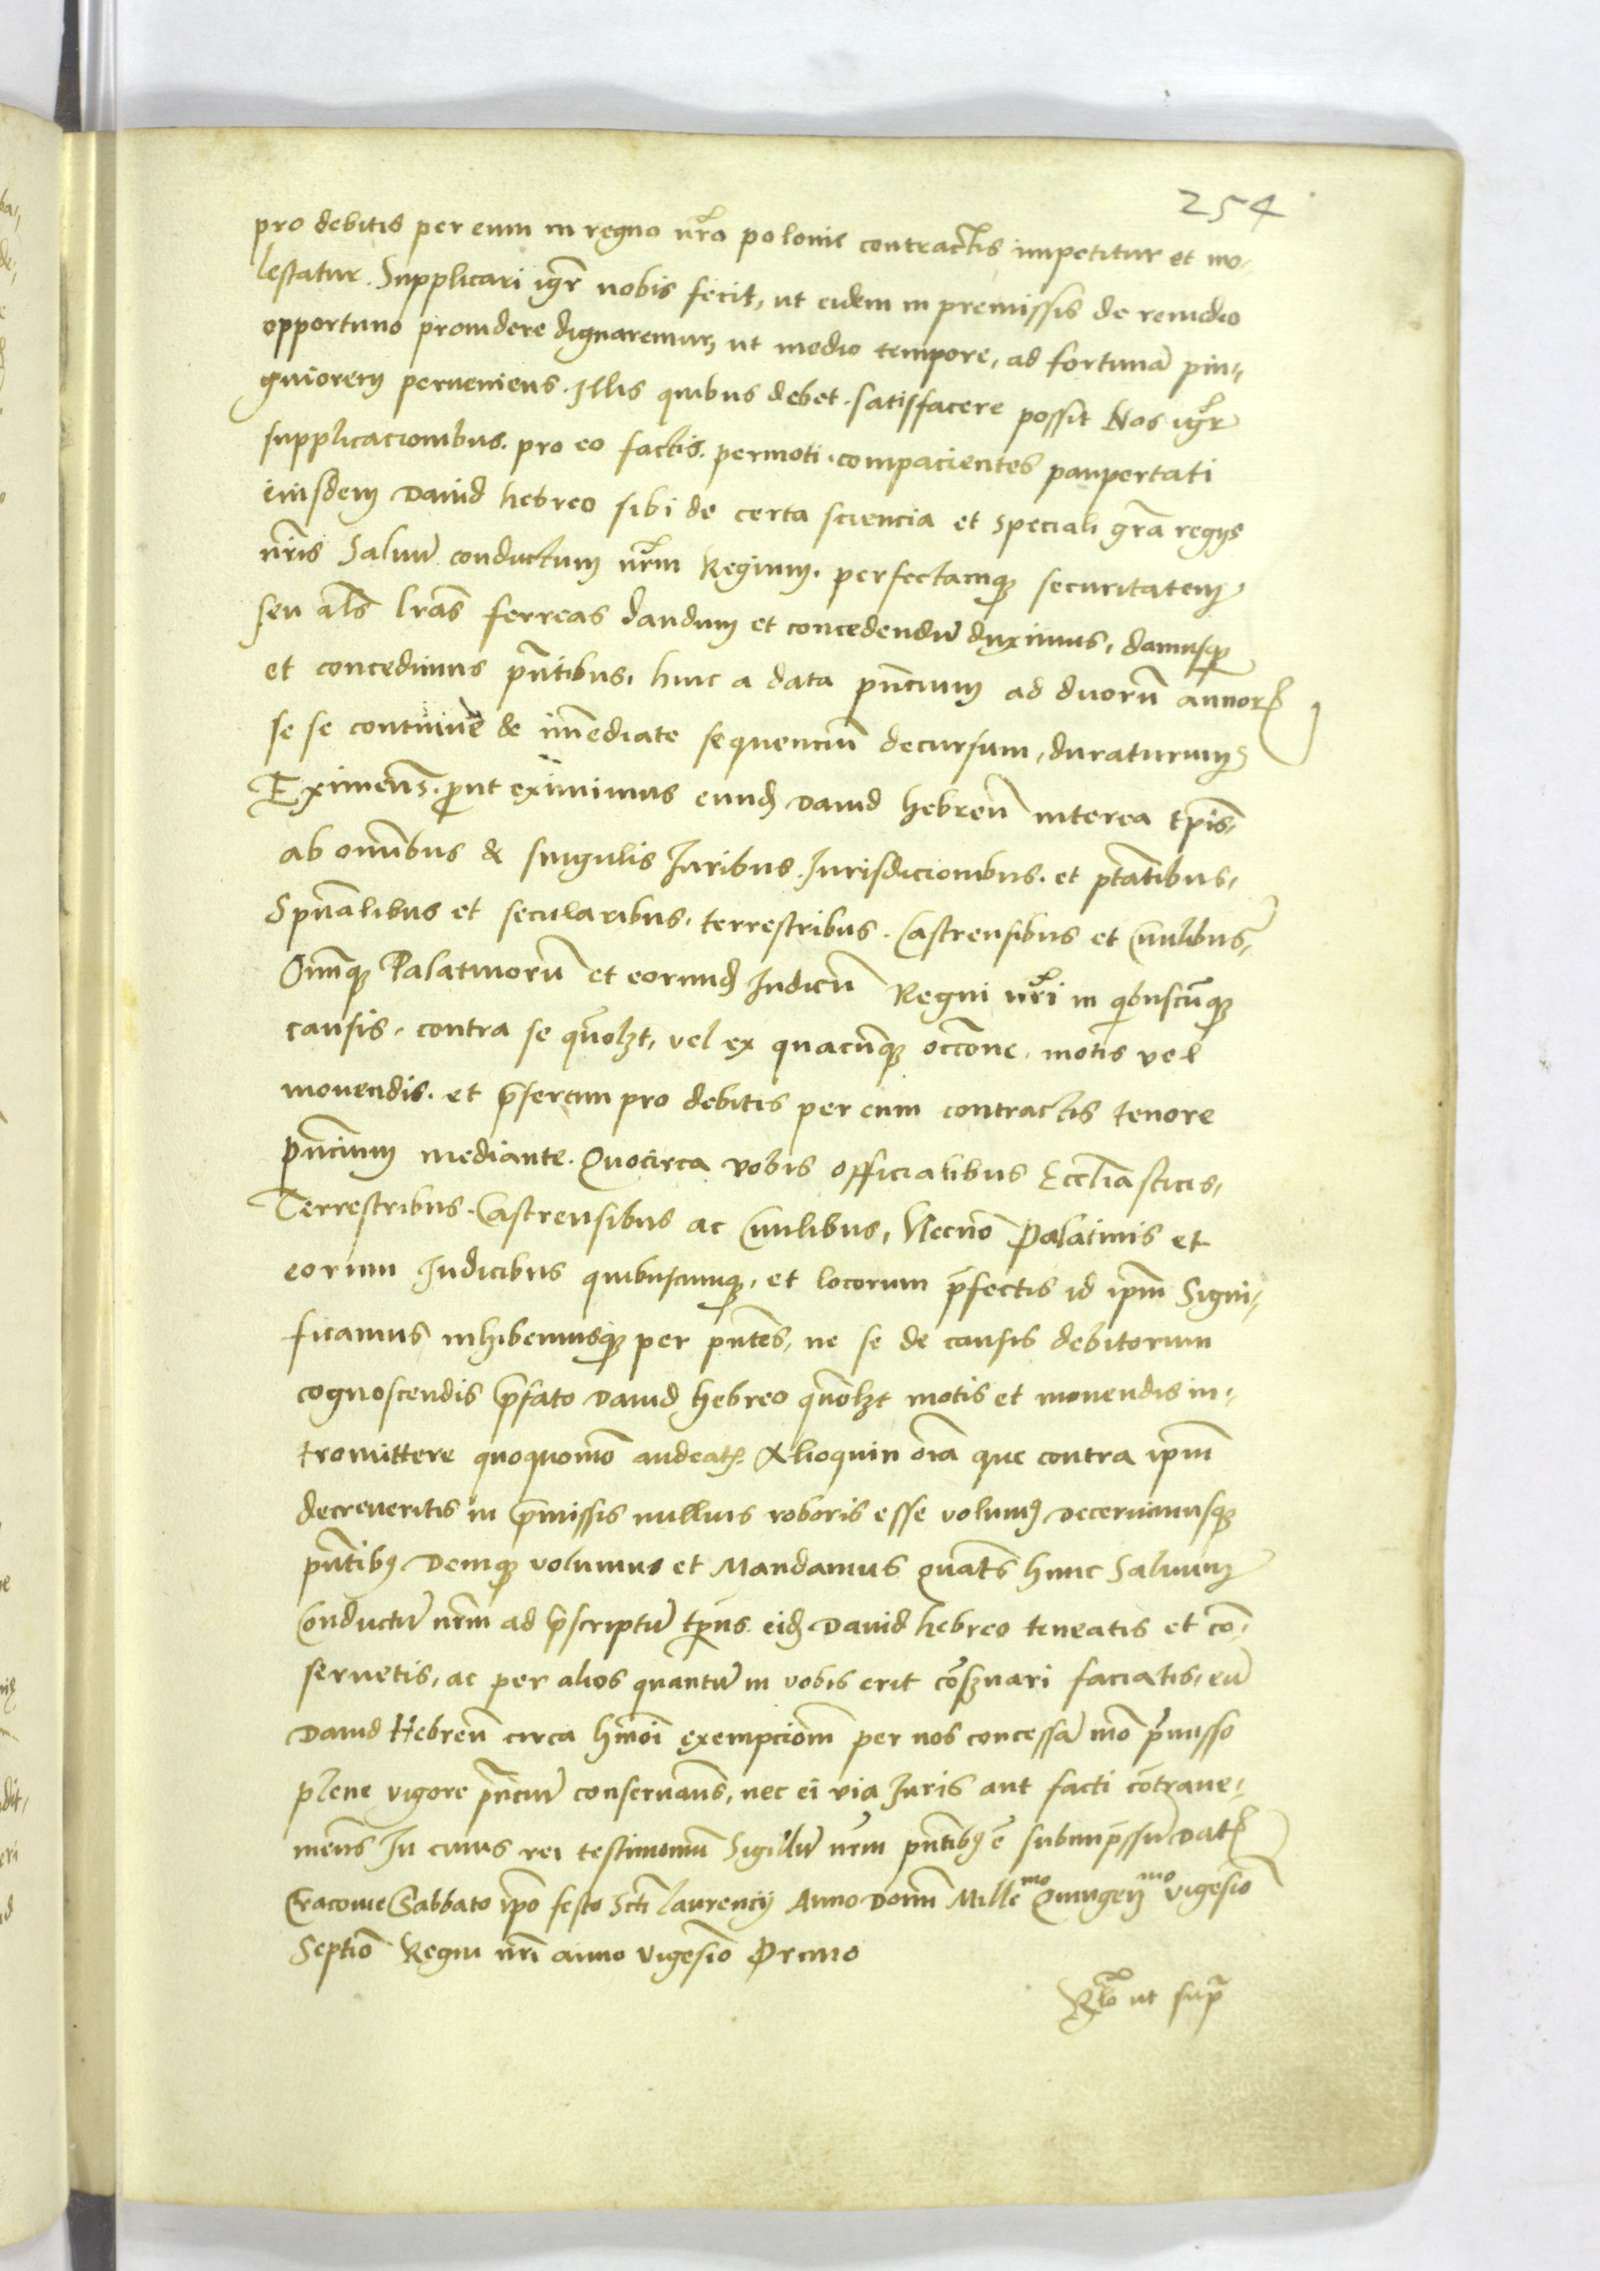 254
pro debitis per eum in regno nr̃o polonie contractis impetitur et mo-
lestatur. Supplicari igr̃ nobis fecit, ut eidem in premissis de remedio
opportuno prouidere dignaremur, ut medio tempore, ad fortunã pin-
guiorem perueniens. Illis quibus debet. satisfacere possit Nos igr̃
supplicacionibus. pro eo factis. permoti. compacientes paupertati
eiusdem Dauid hebreo sibi de certa sciencia et speciali gr̃a regijs
nr̃is Saluũ conductum nr̃m Regium. perfectamq; securitatem
seu als̃ lr̃as ferreas dandum et concedendũ duximus, damusq;
et concedimus pñtibus. hinc a data pñcium ad duorũ annor̃
se se continue & im̃ediate sequenciũ decursum, duraturum
Eximens. prout eximimus eund̃ Dauid hebreũ interea tp̃is
ab om̃ibus & singulis Juribus. Jurisdicionibus. et ptãtibus,
Spũalibus et secularibus. terrestribus. Castrensibus et Ciuilibus,
Om̃iq; Palatinorũ et eorund̃ Judicũ Regni nr̃i in qibuscũq;
causis. contra se quolzt, vel ex quacũq; occõne. motis vel
mouendis. et p̃sertim pro debitis per eum contractis tenore
pñcium mediante. Quocirca vobis officialibus Eccl̃iasticis,
Terrestribus. Castrensibus ac Ciuilibus, Necnõ Palatinis et
eorum Judicibus quibuscumq;, et locorum p̃fectis id ip̃m Signi-
ficamus inhibemusq; per pñtes, ne se de causis debitorum
cognoscendis p̃fato Dauid hebreo quõlzt motis et mouendis in-
tromittere quoquomõ audeat̃. Alioquin om̃ia que contra ip̃m
decreueritis in p̃missis nullius roboris esse volum9 decernimusq;
pñtib9 Demq; volumus et Mandamus Quatẽs hunc Saluum
Conductũ nr̃m ad p̃scriptũ tp̃us eid̃ Dauid hebreo teneatis et cõ-
seruetis, ac per alios quantũ in vobis erit cõseruari faciatis, eũ
Dauid Hebreũ circa hm̃õi exempcionm̃ per nos concessã mõ p̃misso
plene vigore pñciũ conseruañs, nec ei via Juris aut facti cõtraue-
nieñs In cuius rei testimoniũ Sigillũ nr̃m pñtib9 ẽ subimp̃ssũ Dat̃
Cracouie Sabbato ip̃o festo Scti Laurencij Anno Domĩ Mill̃emo Quingenmo vigesio
Septiõ Regni nr̃i anno vigesiõ Primo
Rlõ ut supr̃